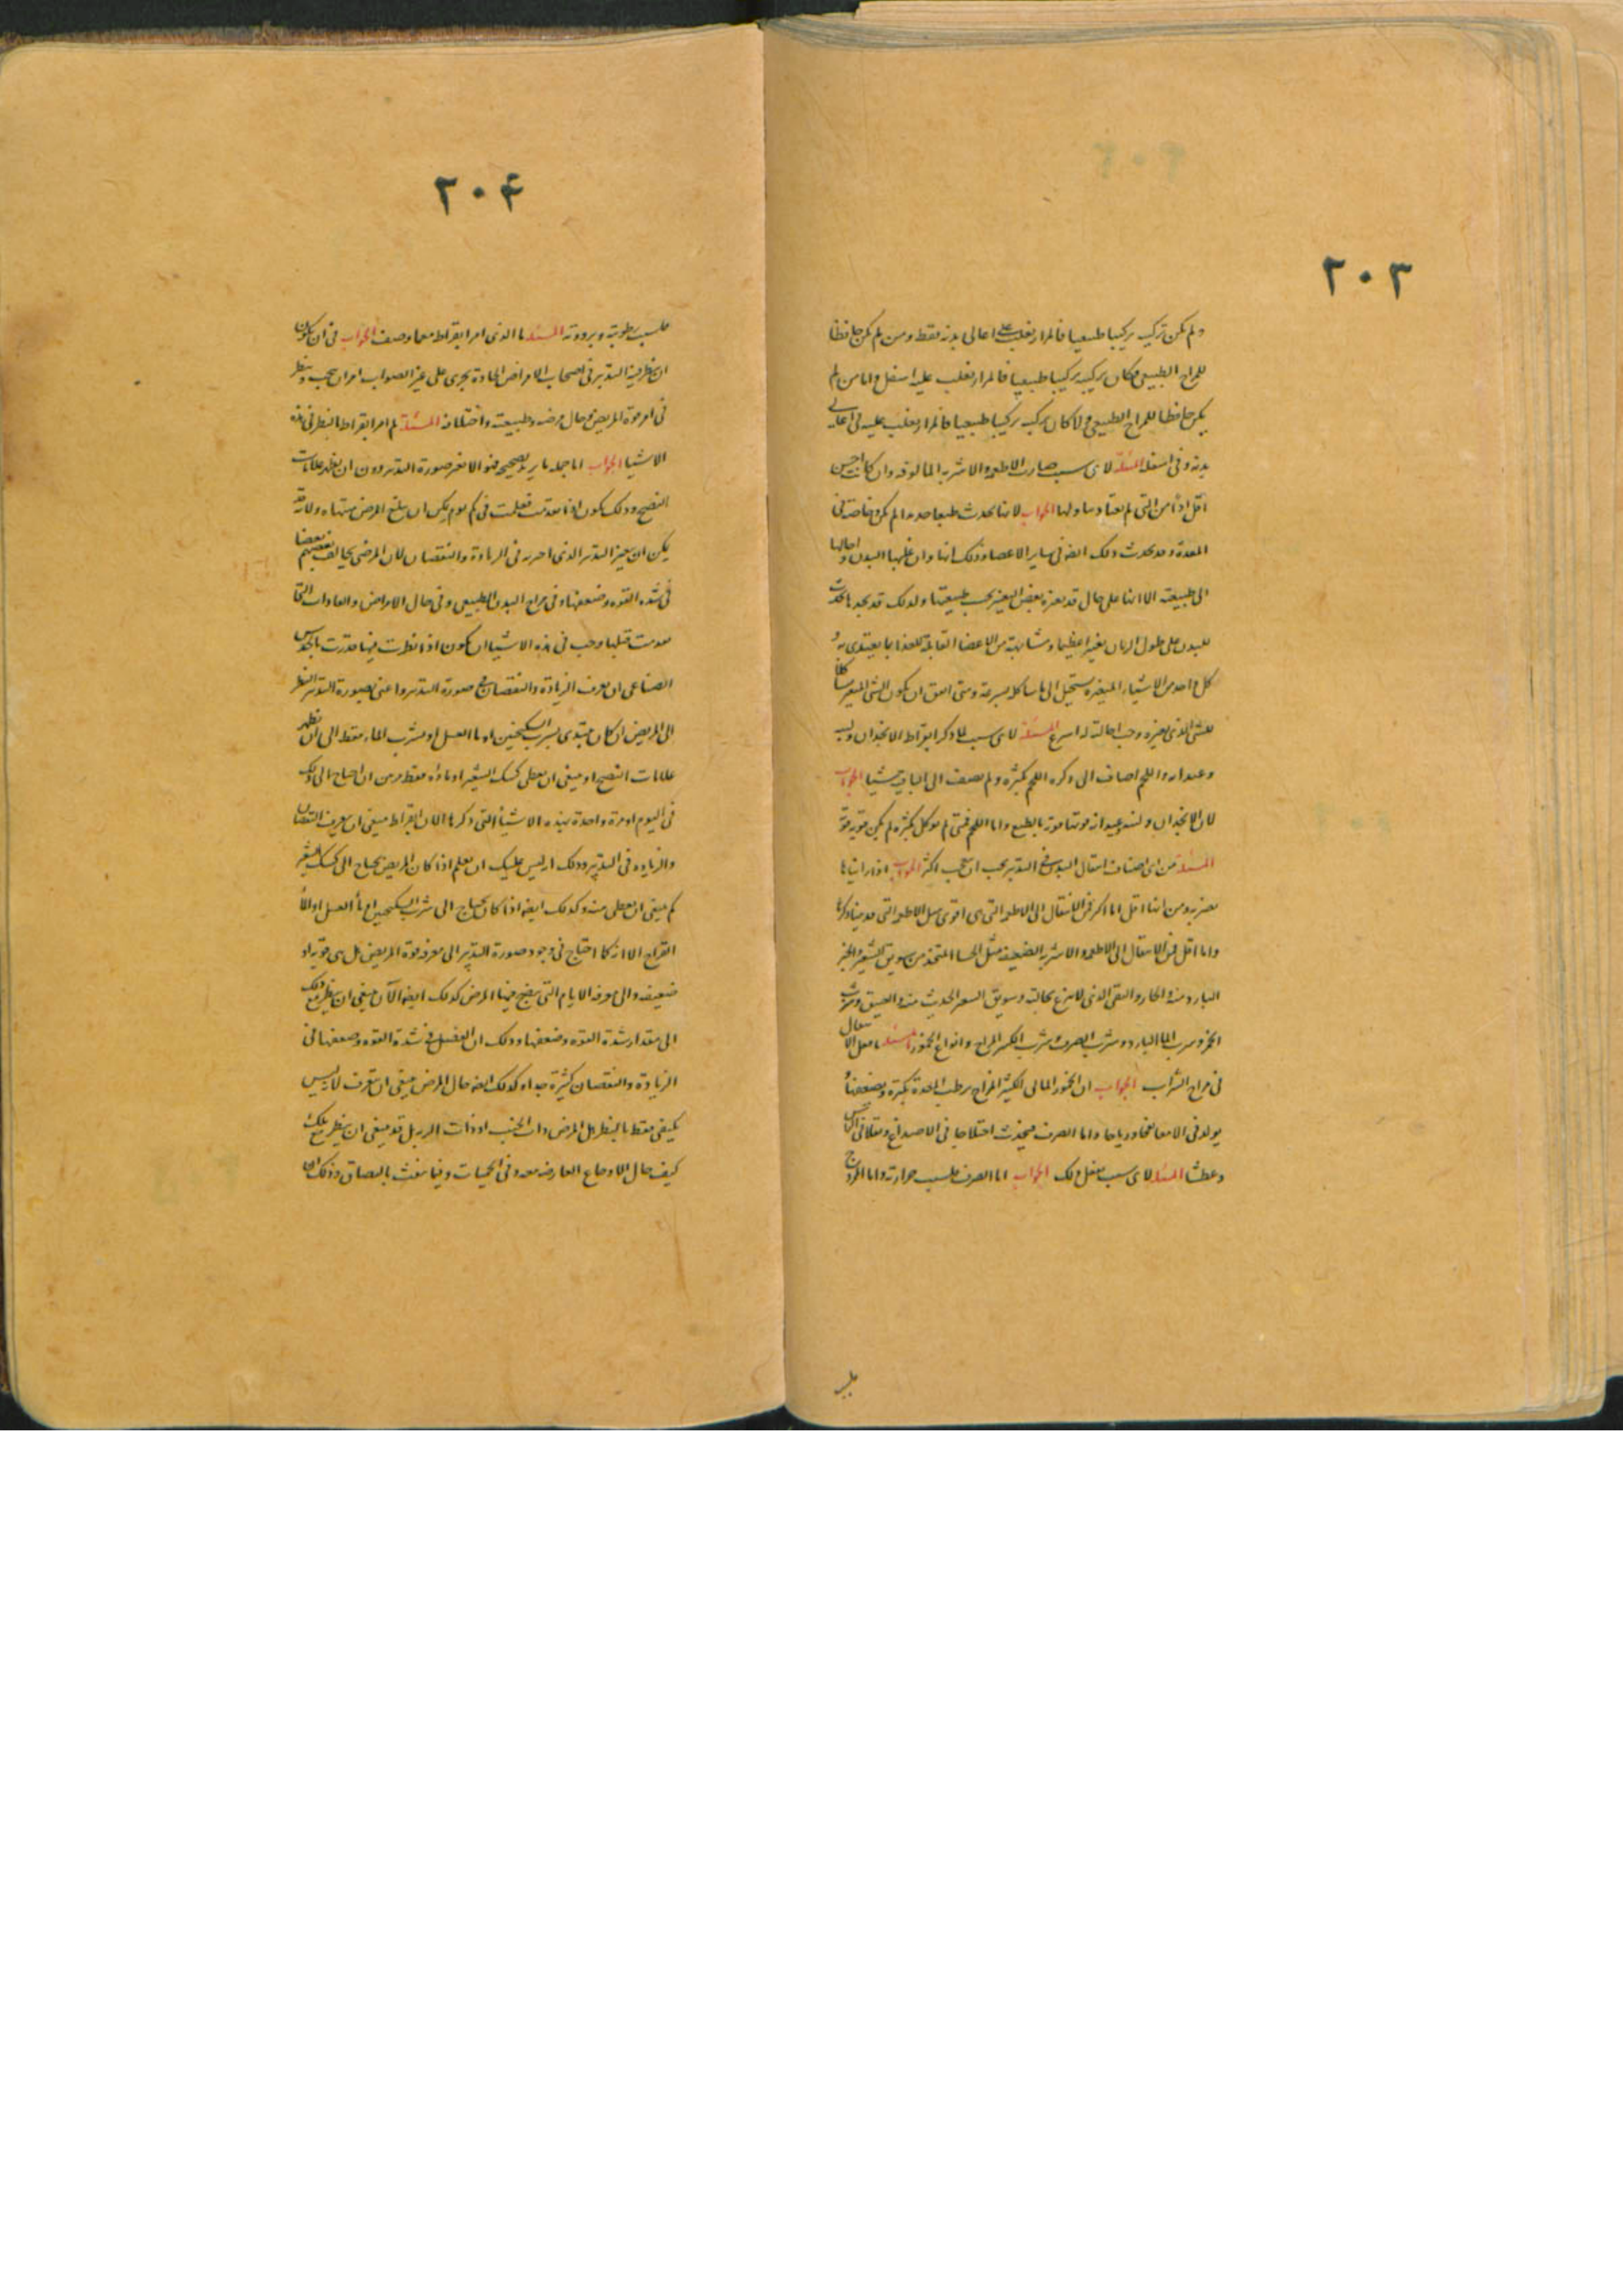 ٢٠٣
ولم يكن تركيبه تركيبا طبيعيا فالمرار يغلب على اعالى بدنه فقط ومن لم يكن حافظا
للمزاج الطبيعى وكان تركيبه تركيبا طبيعيا فالمرار يغلب عليه اسفل واما من لم
يكن حافظا للمزاج الطبيعى ولا كان تركيبه تركيبا طبيعيا فالمرار يغلب عليه فى اعالى
بدنه وفى اسفله المسئلة لاى سبب صارت الاطعمه والاشربه المالوفه وان كانت اخس
اقل اذا من التى لم يعتاد تناولها الجواب لانها تحدث طبعا جديدا لم يكن وخاصة فى
المعدة وقد يحدث ذلك ايضا فى ساير الاعضا وذلك انها وان غلبها البدن واحالها
الى طبيعته الا انها على حال قد يغيره بعض التغيير بحسب طبيعتها ولذلك قد يحدث
للبدن على طول الزمان تغيير عظيما ومشابهة من الاعضا القابلة للغذا بما يغتذى به و
كل واحد من الاشيا المتغيره يستحيل الى ما شاكله بسرعة ومتى اتفق ان يكون الشى المتغير مشاكلا
للشى الذى يغيره وجب احالته له اسرع المسئلة لاى سبب لما ذكر ابقراط الانجدان ولبنه
وعيدانه واللحم اضاف الى ذكره اللحم بكثرة ولم يضف الى الباقى شيا الجواب
لان الانجدان ولبنه وعيدانه قوتها قوية بالطبع واما اللحم فمتى لم يوكل بكثرة لم يكن قوته قوية
المسئلة من اى اصناف انتقال البدن فى التدبير يجب ان يتجنب اكثر الجواب اذا راينا ما
يضر به ومن انها اقل اما اكثر فى الانتقال الى الاطعمة التى هى اقوى مثل الاطعمة التى قدمنا ذكرها
واما اقل فى الانتقال الى الاطعمه والاشربه الضعيفه مثل الحسا المتخذ من سويق الشعير والخبز
البارد منه والحار والنقى الذى لم ينزع نخالته وسويق الشعير الحديث منه والعتيق وشرب
الخمر وشرب الماء البارد وشرب الصرف وشرب الكثير المزاج وانواع الخمور المسئلة ما فعل الانتقال
فى مزاج الشراب الجواب ان الخمر المائى الكثير المزاج يرطب المعدة بكثرة ويضعفها و
يولد فى الامعا نفخا ورياحا واما الصرف فيحدث اختلاجا فى الاصداغ وثقلا فى الراس
وعطشا المسئلة لاى سبب يفعل ذلك الجواب اما الصرف فلسبب حرارته واما الممزوج
فلسبب
٢٠٤
فلسبب رطوبته وبرودته المسئلة ما الذى امر ابقراط معما وصف الجواب فى ان يكون
ان نظر فيه التدبير فى اصحاب الامراض الحادة يجرى على غير الصواب امر ان يتجنب وينظر
فى امر قوة المريض وحال مرضه وطبيعته واختلافه المسئلة لم امر ابقراط بالنظر فى هذه
الاشيا الجواب اما جمله ما يريد تصحيحه فهو الا تغير صورة التدبير دون ان يظهر علامات
النضج وذلك يكون اذا تقدمت فعلمت فى كم يوم يمكن ان يبلغ المرض منتهاه ولانه قد
يمكن ان يغير التدبير الذى اجريه فى الزيادة والنقصان لان المرضى يخالف بعضهم بعضا
فى شدة القوه وضعفها وفى مزاج البدن الطبيعى وفى حال الامراض والعادات التى
تقدمت قبلها وجب فى هذه الاشيا ان يكون اذا نظرت فيها قدرت بالحدس
الصناعى ان تعرف الزيادة والنقصان فى صورة التدبير واعنى بصورة التدبير النظر
الى المريض ان كان يبتدى بشرب السكنجبين او ماء العسل او بشرب الماء فقط الى ان تظهر
علامات النضج او ينبغى ان يعطى كشك الشعير او ماؤه فقط ومن ان احتاج الى ذلك
فى اليوم او مرة واحدة بهذه الاشيا التى ذكرها الان ابقراط ينبغى ان يعرف النقصان
والزياده فى التدبير وذلك انه ليس عليك ان تعلم اذا كان المريض يحتاج الى كشك الشعير
كم ينبغى ان يعطى منه وكذلك ايضا اذا كان يحتاج الى شرب السكنجبين او ماء العسل او الماء
القراح الا انه كما احتاج فى وجود صورة التدبير الى معرفة قوة المريض هل هى قويه او
ضعيفه والى معرفه الايام التى ينضج فيها المرض كذلك ايضا الآن ينبغى ان ينظر مع ذلك
الى مقدار شدة القوه وضعفها وذلك ان الفضل فى شدة القوه وضعفها فى
الزيادة والنقصان كثيرة جدا وكذلك ايضا حال المرض ينبغى ان تتعرف لانه ليس
يكفى فقط بالنظر هل المرض ذات الجنب او ذات الرية بل قد ينبغى ان ينظر مع ذلك
كيف حال الاوجاع العارضه معه وفى الحميات وفيما ينفث بالبصاق وذلك انا